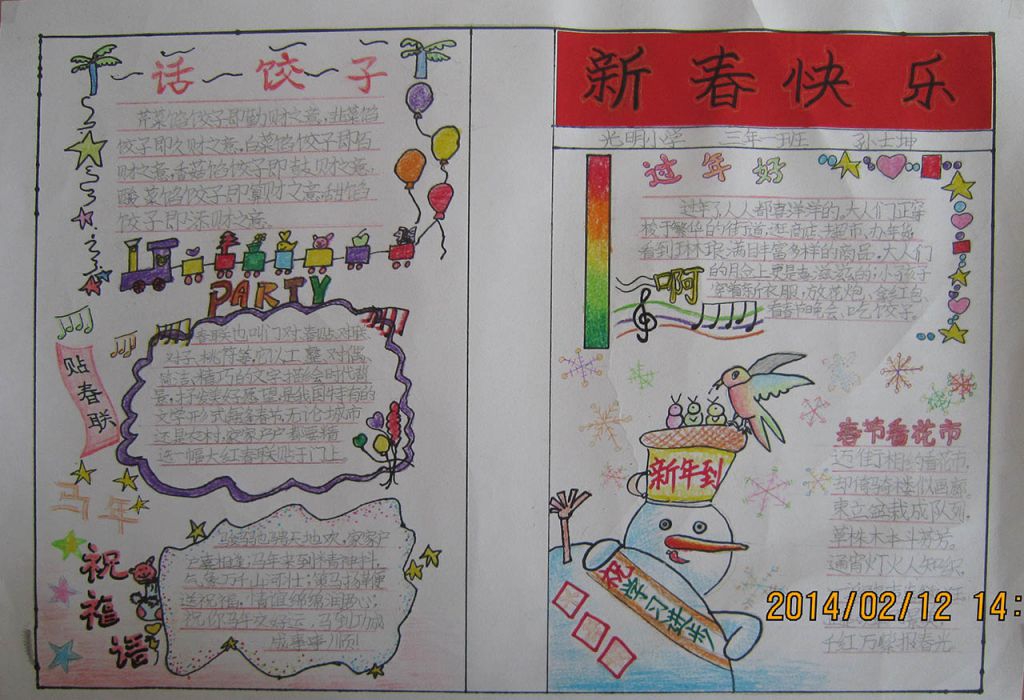 话饺子
芹菜馅饺子即勤财之意,韭菜馅
饺子即久财之意,白菜馅饺子即百
财之意,香菇馅饺子即鼓财之意,
酸菜馅饺子即算财之意,甜馅
饺子即添财之意。
PARTY
贴春联
春联也叫门对、春贴、对联
对子、桃符等,它以工整、对偶、
简洁、精巧的文字描绘时代背
景,抒发美好愿望,是我国特有的
文学形式。每逢春节,无论城市
还是农村,家家户户都要精
选一幅大红春联贴于门上。
马年
祝福语
家家户
送祝福,情谊绵绵润心,
祝你马年交好运,马到功成
成事事顺!
新春快乐
光明小学 三年一班 孙士坤
过年好
过年了,人人都喜洋洋的,大人们正穿
梭于繁华的街道,逛商店、超市,办年货
看到了琳琅满目丰富多样的商品,大人们
的脸上更是喜滋滋的;小孩子
穿着新衣服,放花炮,拿红包
看春节晚会、吃饺子。
啊
新年到
祝学习进步
春节看花市
迈街相约看花市,
却倚骑楼似画廊。
束立盆栽成队列,
草株木本斗芳菲。
通宵灯火人如织,
千红万紫报春光。
2014/02/12 14: